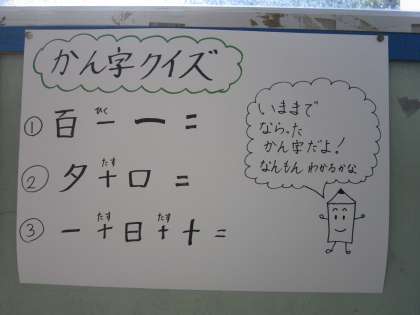 かん字クイズ
① 百 ひく － 一 =
② タ たす + ロ =
③ 一 たす + 日 たす + 十 =
いままで
ならった
かん字だよ!
なんもん わかるかな